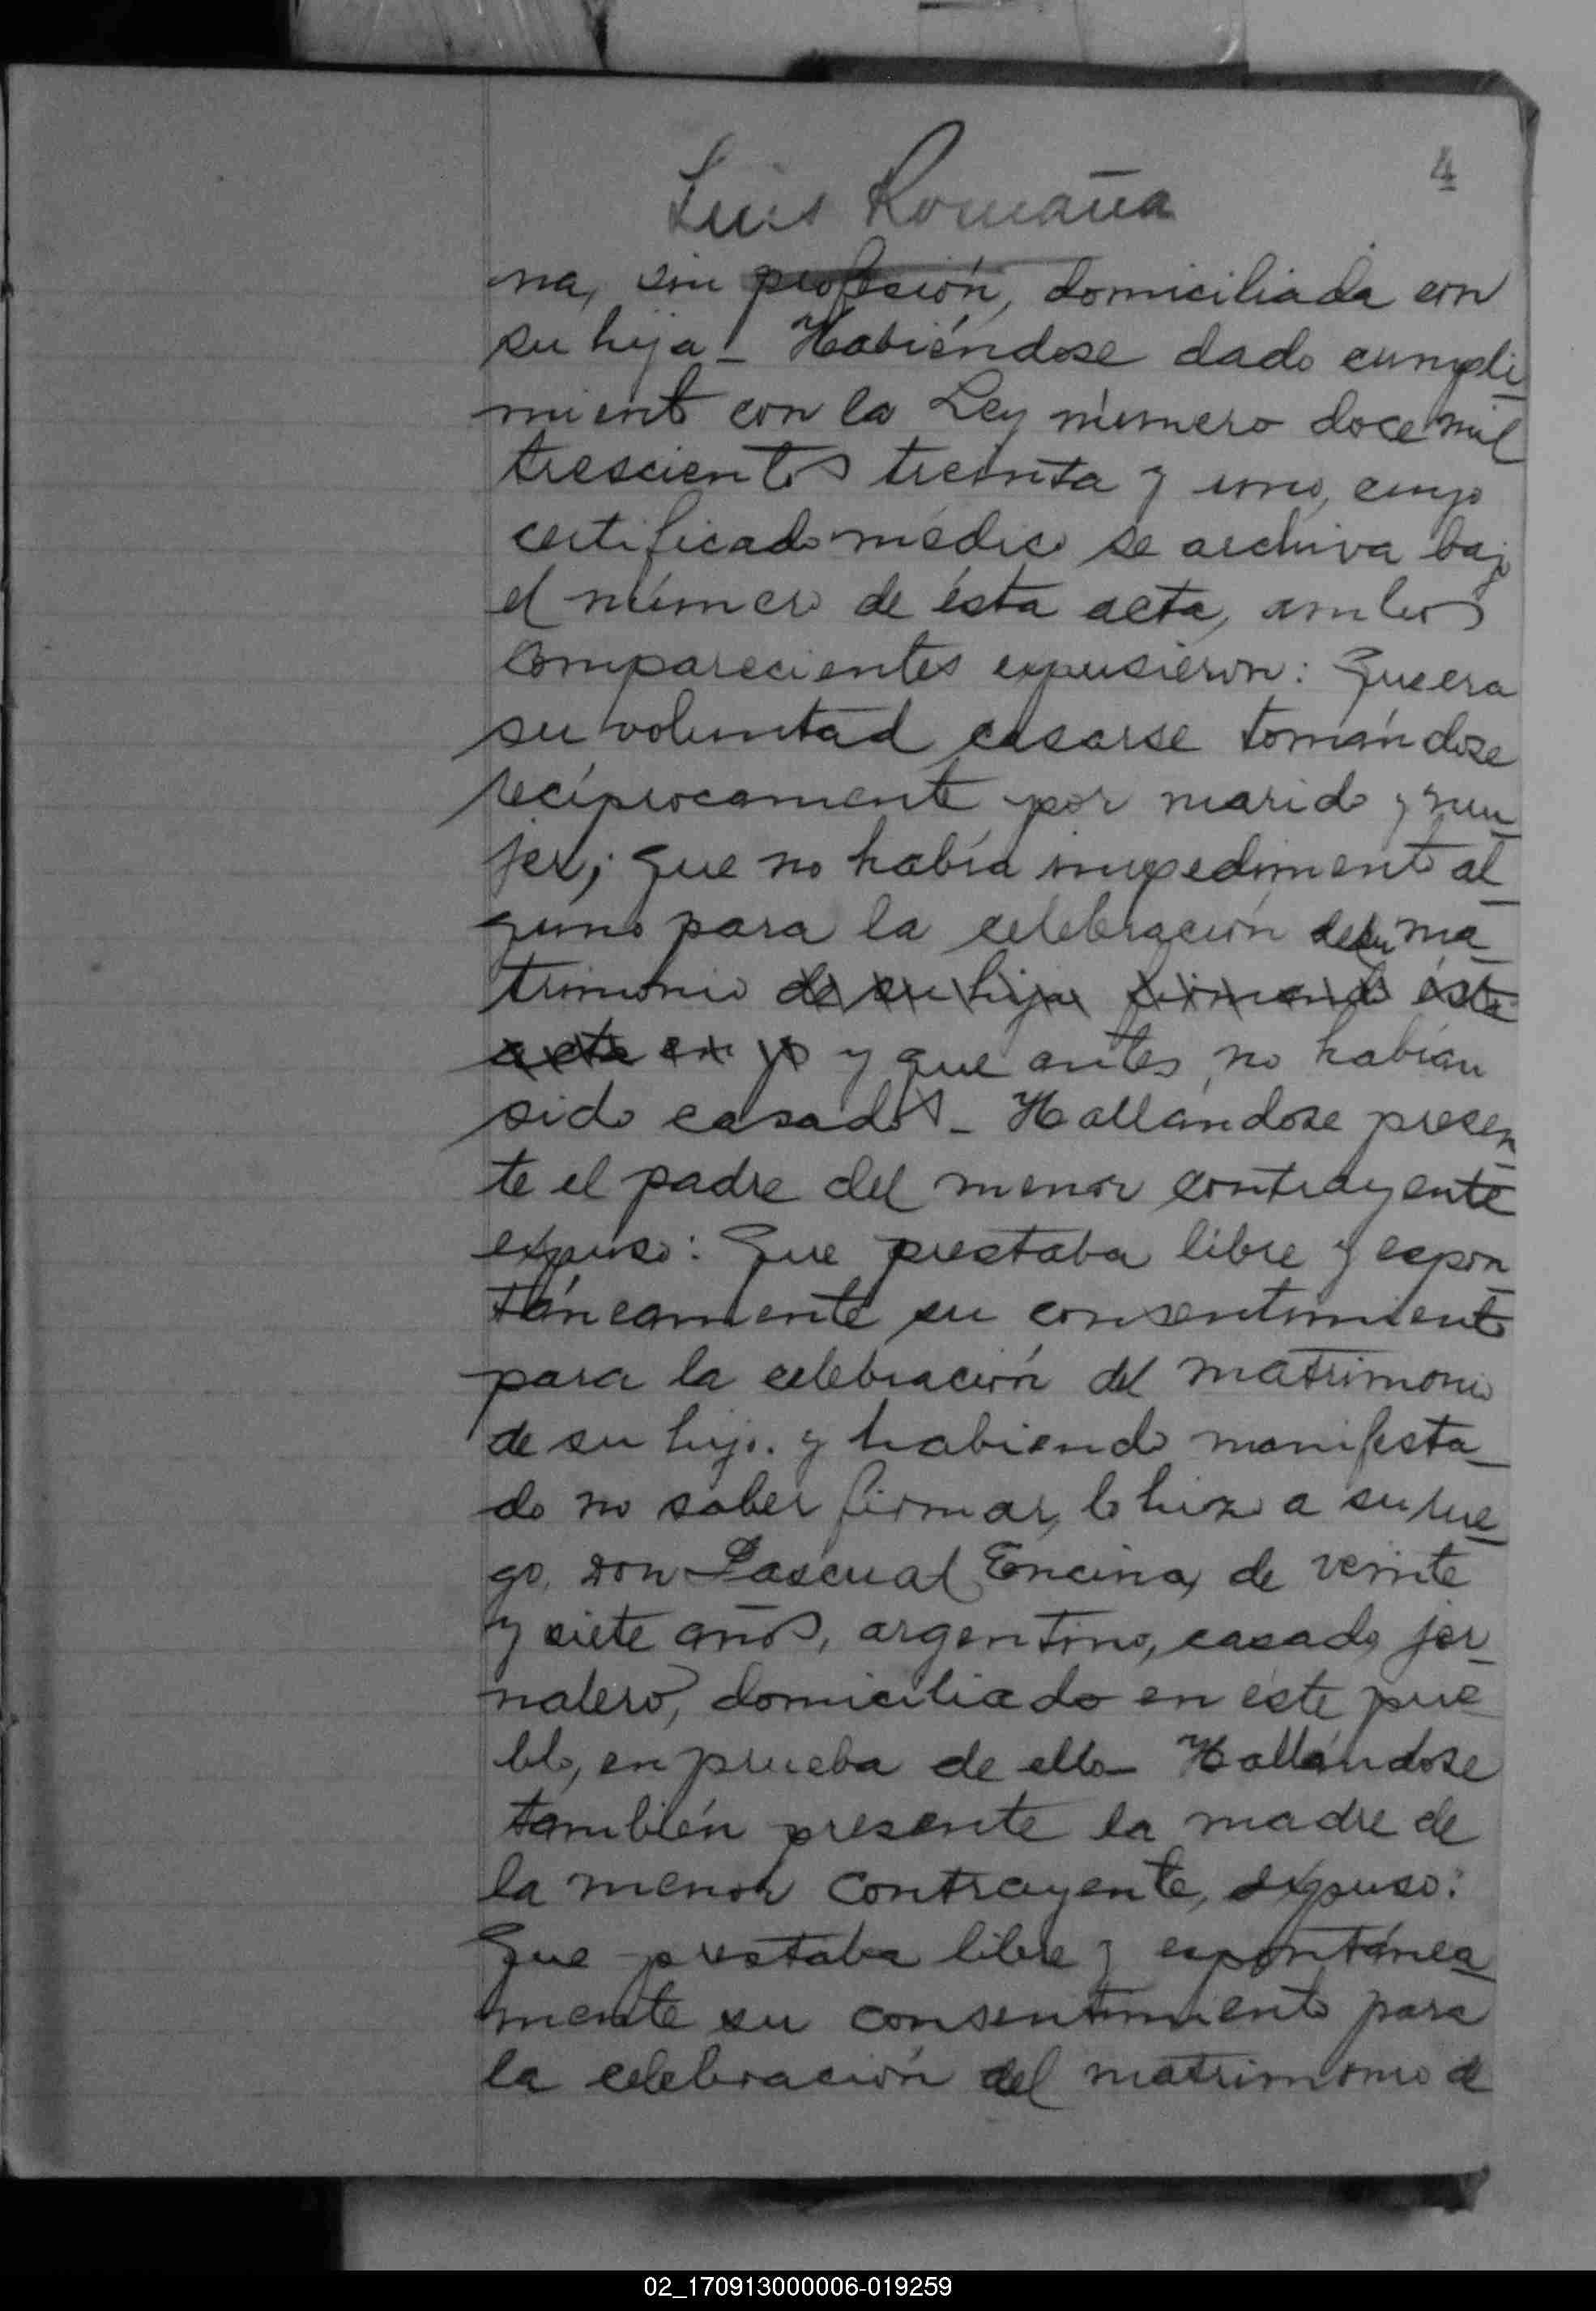 4
Luis Romaña
na, sin profesión, domiciliada con
su hija - Habiéndose dado cumpli
miento con la Ley número doce mil
trescientos treinta y uno, cuyo
certificado médico se archiva bajo
el número de ésta acta, ambos
comparecientes expusieron: Que era
su voluntad casarse tomándose
recíprocamente por marido y mu
jer; que no había impedimento al
guno para la celebración de su ma
trimonio de su hija firmando ésta
acta en p y que antes no habían
sido casados - Hallándose presen
te el padre del menor contrayente
expuso: Que prestaba libre y espon
táneamente su consentimiento
para la celebración del matrimonio
de su hijo. y habiendo manifesta
do no saber firmar, lo hizo a su rue
go, don Pascual Encina, de veinte
y siete años, argentino, casado, jor
nalero, domiciliado en éste pue
blo, en prueba de ello - Hallándose
también presente la madre de
la menor contrayente, expuso:
Que prestaba libre y espontánea
mente su consentimiento para
la celebración del matrimonio de
02_170913000006-019259